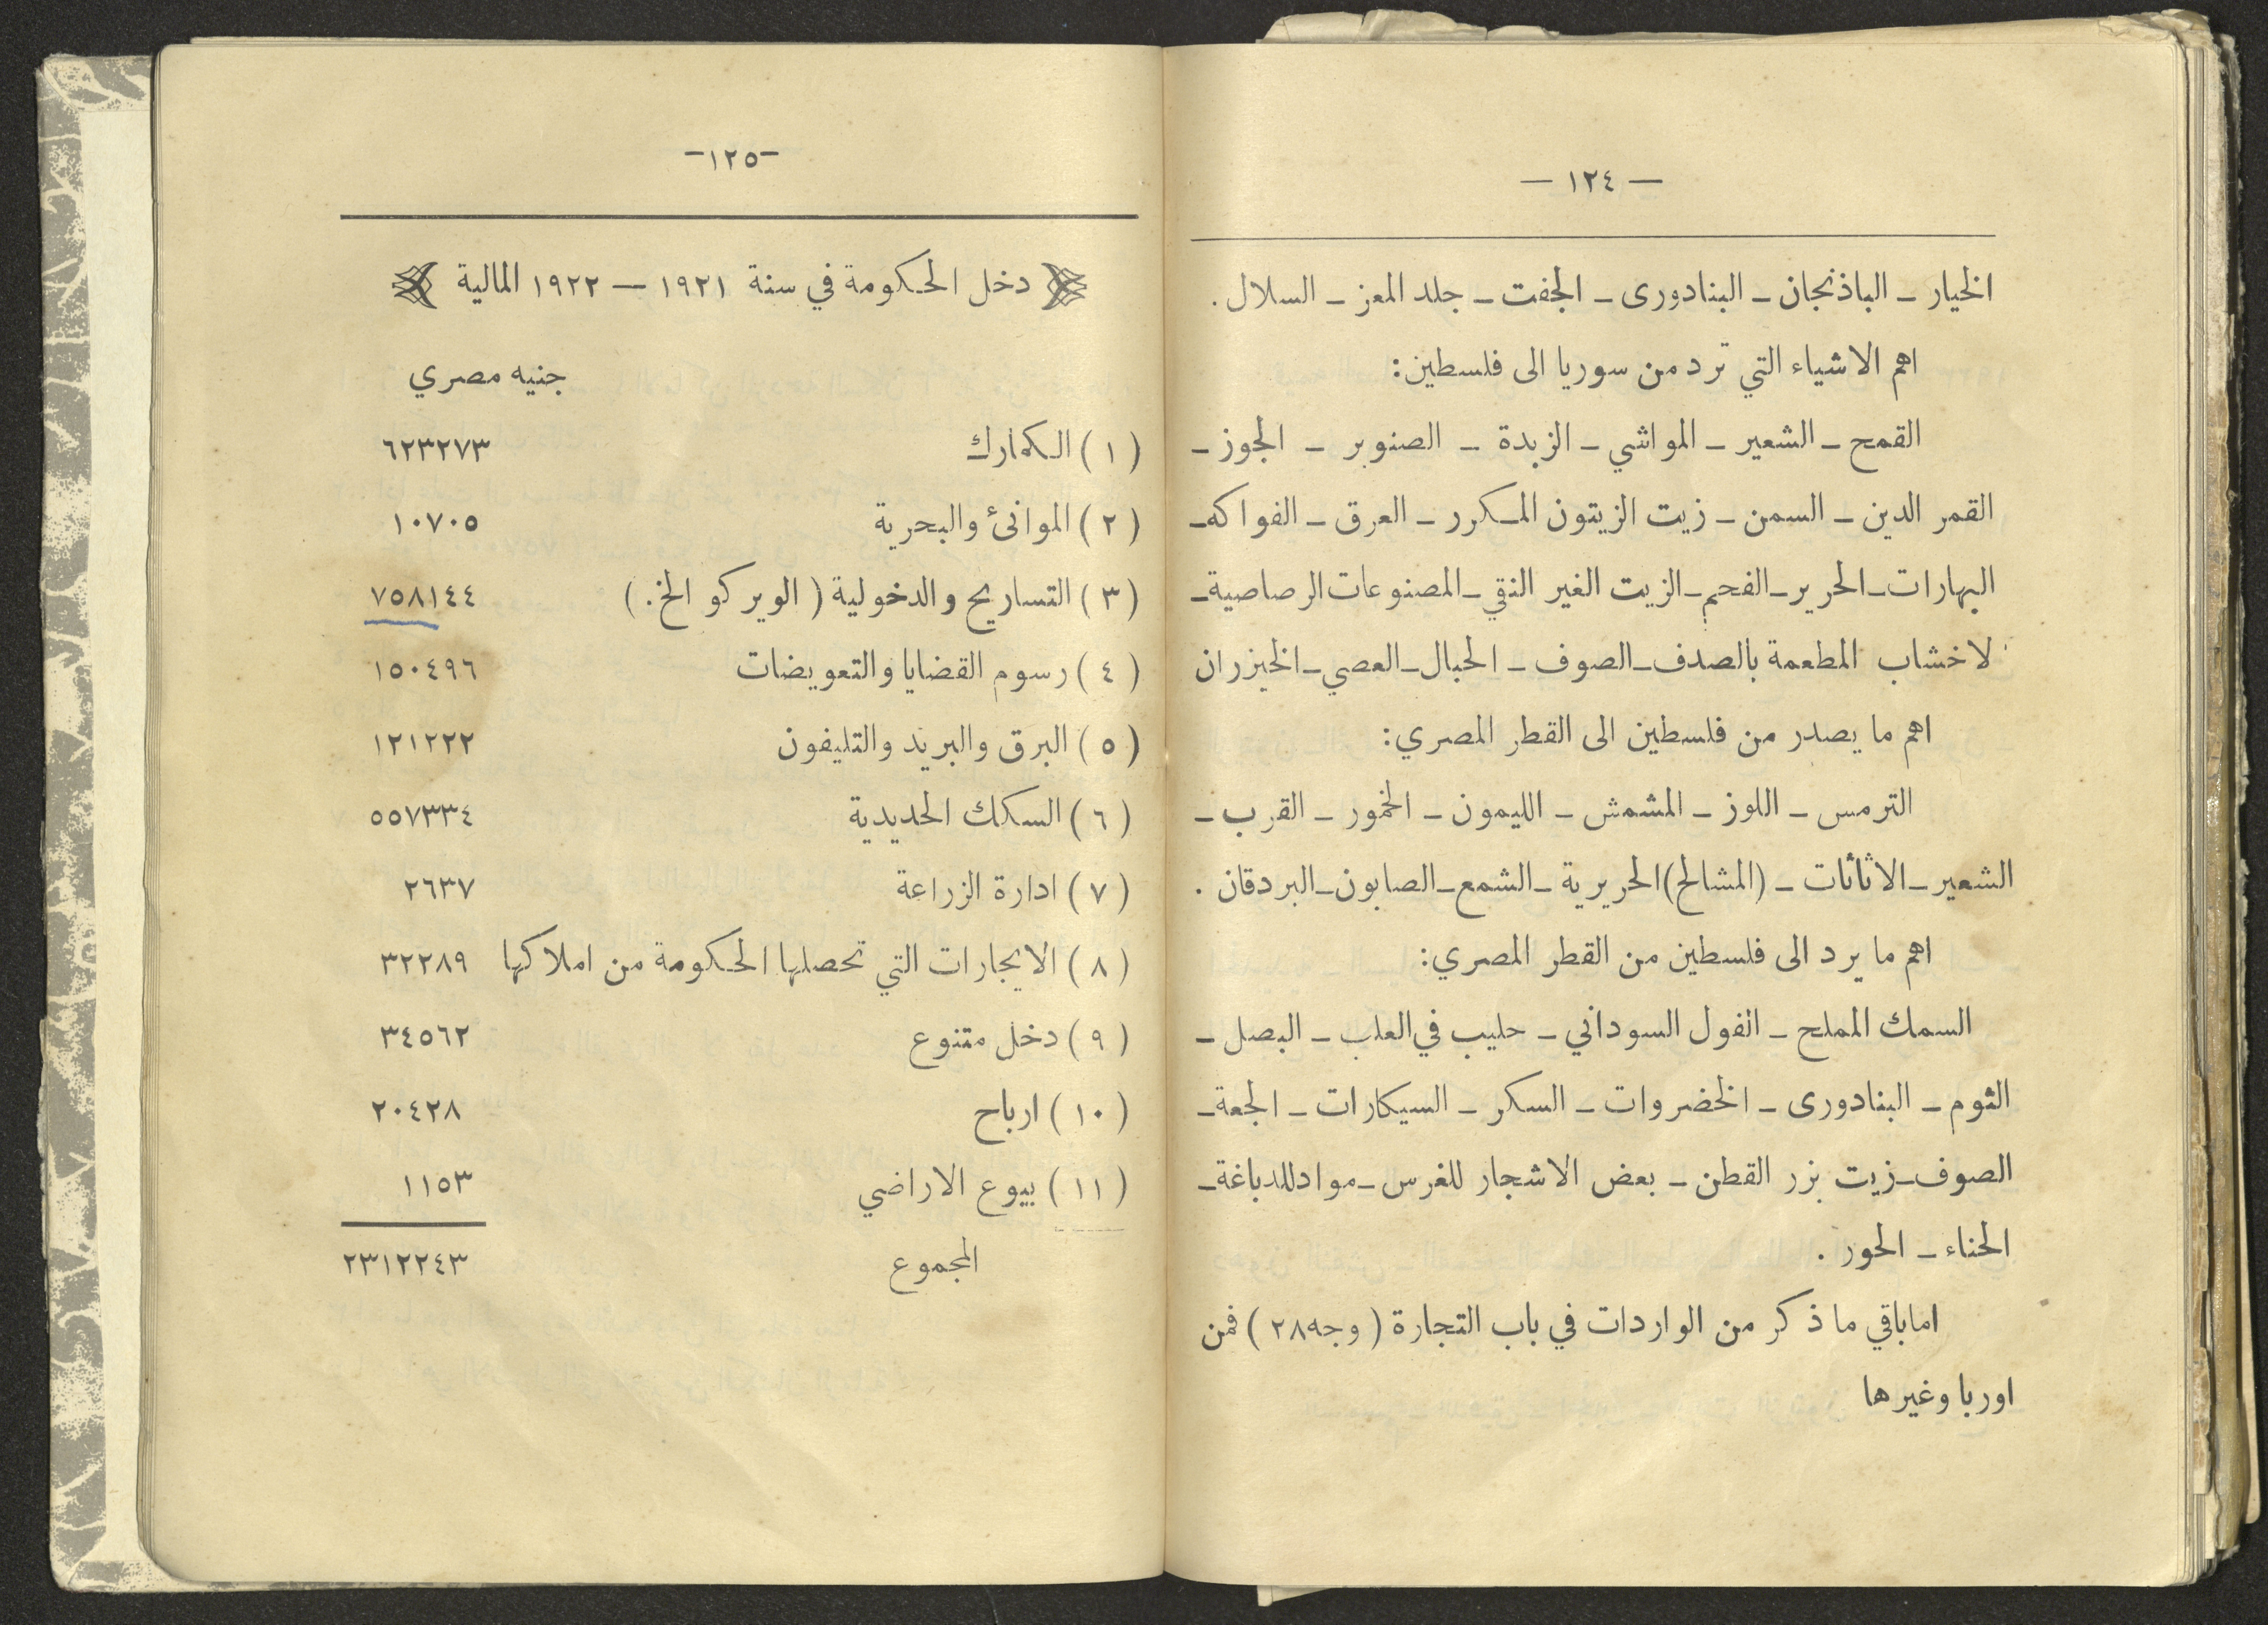 — ١٢٤ —
الخيار – الباذنجان – البنادورى – الجفت – جلد المعز – السلال .
اهم الاشياء التي ترد من سوريا الى فلسطين :
القمح – الشعير – المواشي – الزبدة – الصنوبر – الجوز –
القمر الدين – السمن – زيت الزيتون المكرر – العرق – الفواكه –
البهارات – الحرير – الفحم – الزيت الغير النقي – المصنوعات الرصاصية –
لاخشاب المطعمة بالصدف – الصوف – الحبال – العصي – الخيزران
اهم ما يصدر من فلسطين الى القطر المصري :
الترمس – اللوز – المشمش – الليمون – الخمور – القرب –
الشعير – الاثاثات – (المشالح) الحريرية – الشمع – الصابون – البردقان .
اهم ما يرد الى فلسطين من القطر المصري :
السمك المملح – الفول السوداني – حليب في العلب – البصل –
الثوم – البنادورى – الخضروات – السكر – السيكارات – الجعة –
الصوف – زيت بزر القطن – بعض الاشجار للغرس – مواد للدباغة –
الحناء – الحور .
اما باقي ما ذكر من الواردات في باب التجارة ( وجه ٢٨ ) فمن
اوربا وغيرها
–١٢٥–
دخل الحكومة في سنة ١٩٢١ — ١٩٢٢ المالية
جنيه مصري
( ١ ) الكمارك ٦٢٣٢٧٣
( ٢ ) الموانئ والبحرية ١٠٧٠٥
( ٣ ) التساريح والدخولية ( الويركو الخ . ) ٧٥٨١٤٤
( ٤ ) رسوم القضايا والتعويضات ١٥٠٤٩٦
( ٥ ) البرق والبريد والتليفون ١٢١٢٢٢
( ٦ ) السكك الحديدية ٥٥٧٣٣٤
( ٧ ) ادارة الزراعة ٢٦٣٧
( ٨ ) الايجارات التي تحصلها الحكومة من املاكها ٣٢٢٨٩
( ٩ ) دخل متنوع ٣٤٥٦٢
( ١٠ ) ارباح ٢٠٤٢٨
( ١١ ) بيوع الاراضي ١١٥٣
المجموع ٢٣١٢٢٤٣